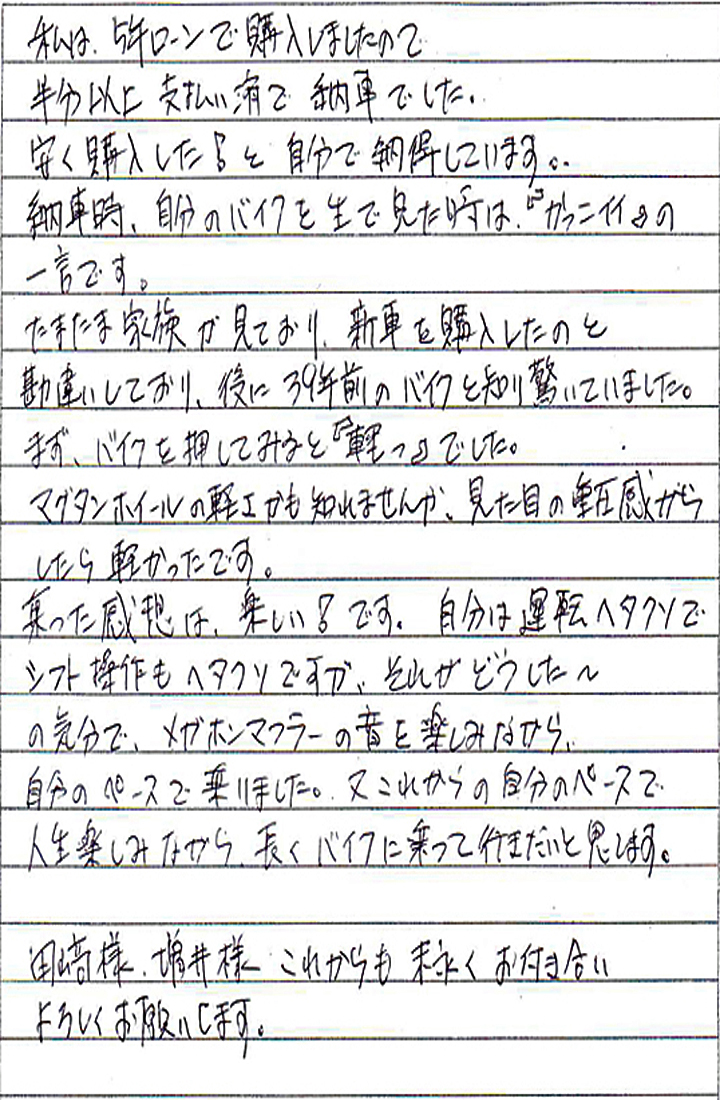 私は、5年ローンで購入しましたので
半分以上 支払い済で 納車でした。
安く購入した!と 自分で納得しています。
納車時、自分のバイクを生で見た時は、『かっこイイ』の
一言です。
たまたま家族が見ており、新車を購入したのと
勘違いしており、後に39年前のバイクと知り驚いていました。
まず、バイクを押してみると『軽っ』でした。
マグタンホイールの軽さかも知れませんが、見た目の重圧感から
したら軽かったです。
乗った感想は、楽しい!です。自分は運転ヘタクソで
シフト操作もヘタクソですが、それがどうした〜
の気分で、メガホンマフラーの音を楽しみながら、
自分のペースで乗りました。又これからの自分のペースで
人生楽しみながら、長くバイクに乗って行きたいと思います。
田崎様、増井様 これからも末永くお付き合い
よろしくお願いします。